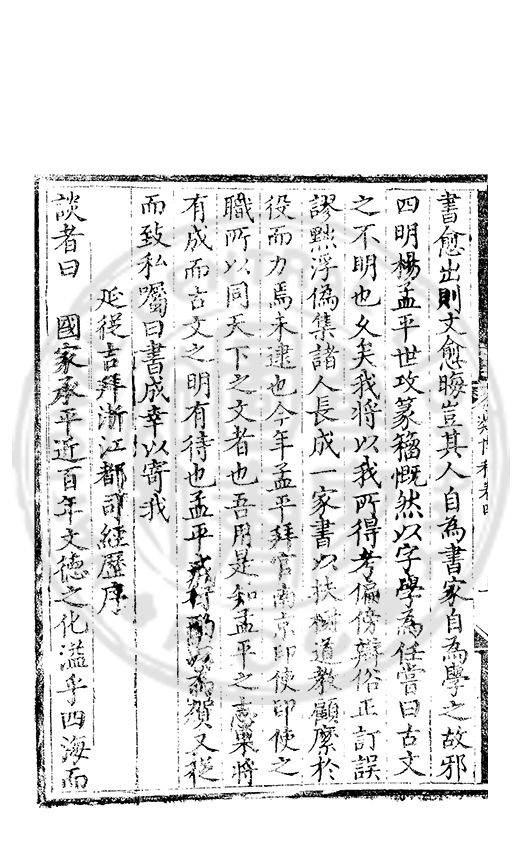 書愈出則文愈晦豈其人自為書家自為學之故邪
四明楊孟平世攻篆籀慨然以字學為任嘗曰古文
之不明也久矣我將以我所得考偏傍辯俗正訂誤
謬黜浮偽集諸人長成一家書以扶樹道教顧縻於
役而力焉未逮也今年孟平拜官南京印使印使之
職所以同天下之文者也吾用是知孟平之志果將
有成而古文之明有待也孟平戒行酌以為賀又從
而致私囑曰書成幸以寄我
延從吉拜浙江都司經歷序
談者曰 國家承平近百年文德之化溢乎四海而